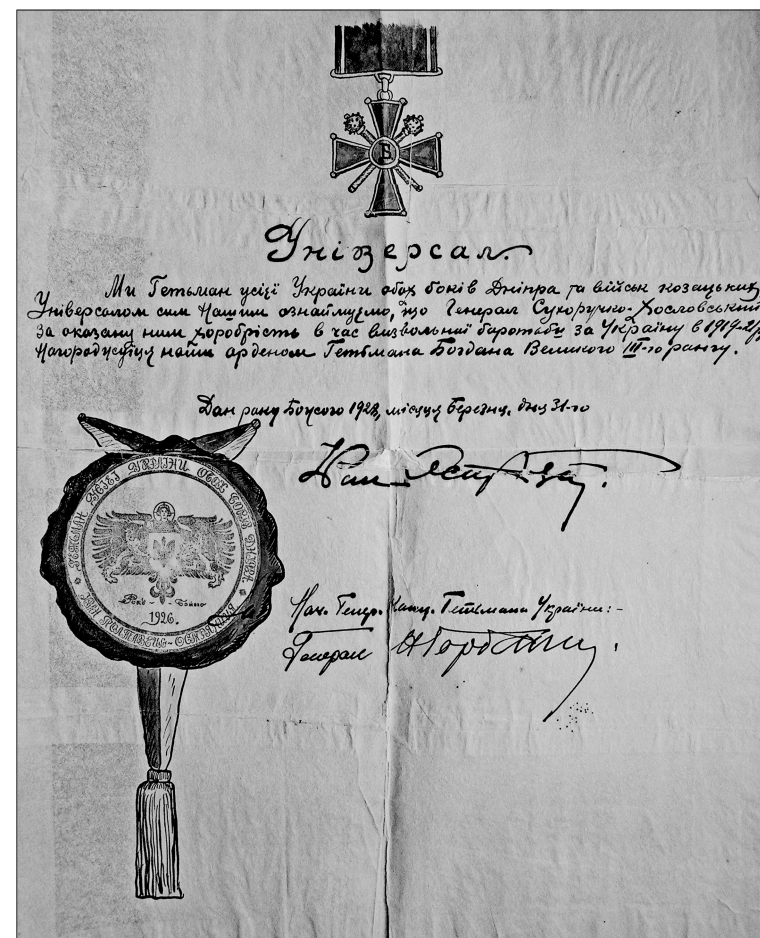 Б
Універсал.
Ми Гетьман усієї України обох боків Дніпра та військ козацьких
Універсалом сим Нашим ознаймуємо, що Генерал Сукоручко-Хословський
За оказану ним хоробрість в час визвольної боротьби за Україну в 1919-21
Нагороджується нашим орденом Гетьмана Богдана Великого III-го рангу.
Дан року Божого 1928, місяця Березня, дня 31-го
Іван
ГЕТЬМАН УСІЄЇ УКРАЇНИ ОБОХ БОКІВ ДНІПРА
ІВАН ПОЛТАВЕЦЬ-ОСТРЯНИЦЯ
1926.
Нач. Генер. Канц. Гетьмана України:-
Генерал